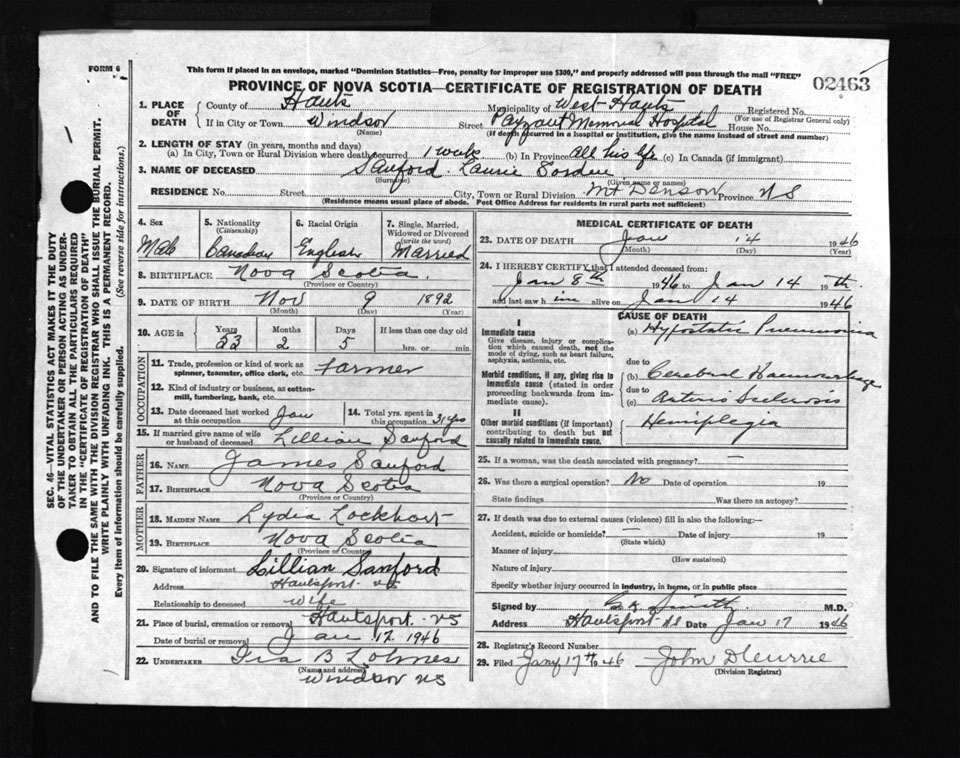 FORM 6
This form if placed in an envelope, marked "Dominion Statistics—Free, penalty for improper use $300," and properly addressed will pass through the mail "FREE"
02463
PROVINCE OF NOVA SCOTIA—CERTIFICATE OF REGISTRATION OF DEATH
1. PLACE OF DEATH
County of Hants
Municipality of West Hants
Registered No.
(For use of Registrar General only)
If in City or Town Windsor
(Name)
Street Payzant Memorial Hospital House No.
(If death occurred in a hospital or institution, give the name instead of street and number)
2. LENGTH OF STAY (in years, months and days)
(a) In City, Town or Rural Division where death occurred 1 week (b) In Province all his life (c) In Canada (if immigrant)
3. NAME OF DECEASED Sanford Laurie
(Surname) (Given name or names)
RESIDENCE No. Street City, Town or Rural Division Mt Denson Province NS
(Residence means usual place of abode. Post Office Address for residents in rural parts not sufficient)
4. Sex
Male
5. Nationality
(Citizenship)
Canadian
6. Racial Origin
English
7. Single, Married, Widowed or Divorced
(write the word)
Married
8. BIRTHPLACE Nova Scotia.
(Province or Country)
9. DATE OF BIRTH Nov 9 1892
(Month) (Day) (Year)
10. AGE in
Years Months Days If less than one day old
53 2 5 hrs. or min.
OCCUPATION
11. Trade, profession or kind of work as spinner, teamster, office clerk, etc. Farmer
12. Kind of industry or business, as cotton-mill, lumbering, bank, etc.
13. Date deceased last worked at this occupation Jan
14. Total yrs. spent in this occupation 31 yrs
15. If married give name of wife or husband of deceased Lillian Sanford
FATHER
16. NAME James Sanford
17. BIRTHPLACE Nova Scotia
(Province or Country)
MOTHER
18. MAIDEN NAME Lydia Lockhart
19. BIRTHPLACE Nova Scotia
(Province or Country)
20. Signature of informant Lillian Sanford
Address Hantsport NS
Relationship to deceased wife
21. Place of burial, cremation or removal Hantsport NS
Date of burial or removal Jan 17 1946
22. UNDERTAKER Ira B Lohnes
(Name and address)
Windsor NS
MEDICAL CERTIFICATE OF DEATH
23. DATE OF DEATH Jan 14 1946
(Month) (Day) (Year)
24. I HEREBY CERTIFY that I attended deceased from:
Jan 8th 1946 to Jan 14th 19
and last saw h im alive on Jan 14 1946
CAUSE OF DEATH
I
Immediate cause
Give disease, injury or complication which caused death, not the mode of dying, such as heart failure, asphyxia, asthenia, etc.
(a) Hypostatic Pneumonia
due to
Morbid conditions, if any, giving rise to immediate cause (stated in order proceeding backwards from immediate cause).
(b) Cerebral Haemorrhage
due to
(c) Arterio Sclerosis
II
Other morbid conditions (if important) contributing to death but not causally related to immediate cause.
Hemiplegia
25. If a woman, was the death associated with pregnancy? —
26. Was there a surgical operation? No Date of operation 19
State findings Was there an autopsy?
27. If death was due to external causes (violence) fill in also the following:—
Accident, suicide or homicide? Date of injury 19
(State which)
Manner of injury
(How sustained)
Nature of injury
Specify whether injury occurred in industry, in home, or in public place
Signed by Smith M.D.
Address Hantsport NS Date Jan 17 1946
28. Registrar's Record Number
29. Filed Jany 17th 46 John
(Division Registrar)
SEC. 46—VITAL STATISTICS ACT MAKES IT THE DUTY
OF THE UNDERTAKER OR PERSON ACTING AS UNDER-
TAKER TO OBTAIN ALL THE PARTICULARS REQUIRED
IN THE "CERTIFICATE OF REGISTRATION OF DEATH"
AND TO FILE THE SAME WITH THE DIVISION REGISTRAR WHO SHALL ISSUE THE BURIAL PERMIT.
WRITE PLAINLY WITH UNFADING INK. THIS IS A PERMANENT RECORD.
Every item of Information should be carefully supplied. (See reverse side for instructions.)